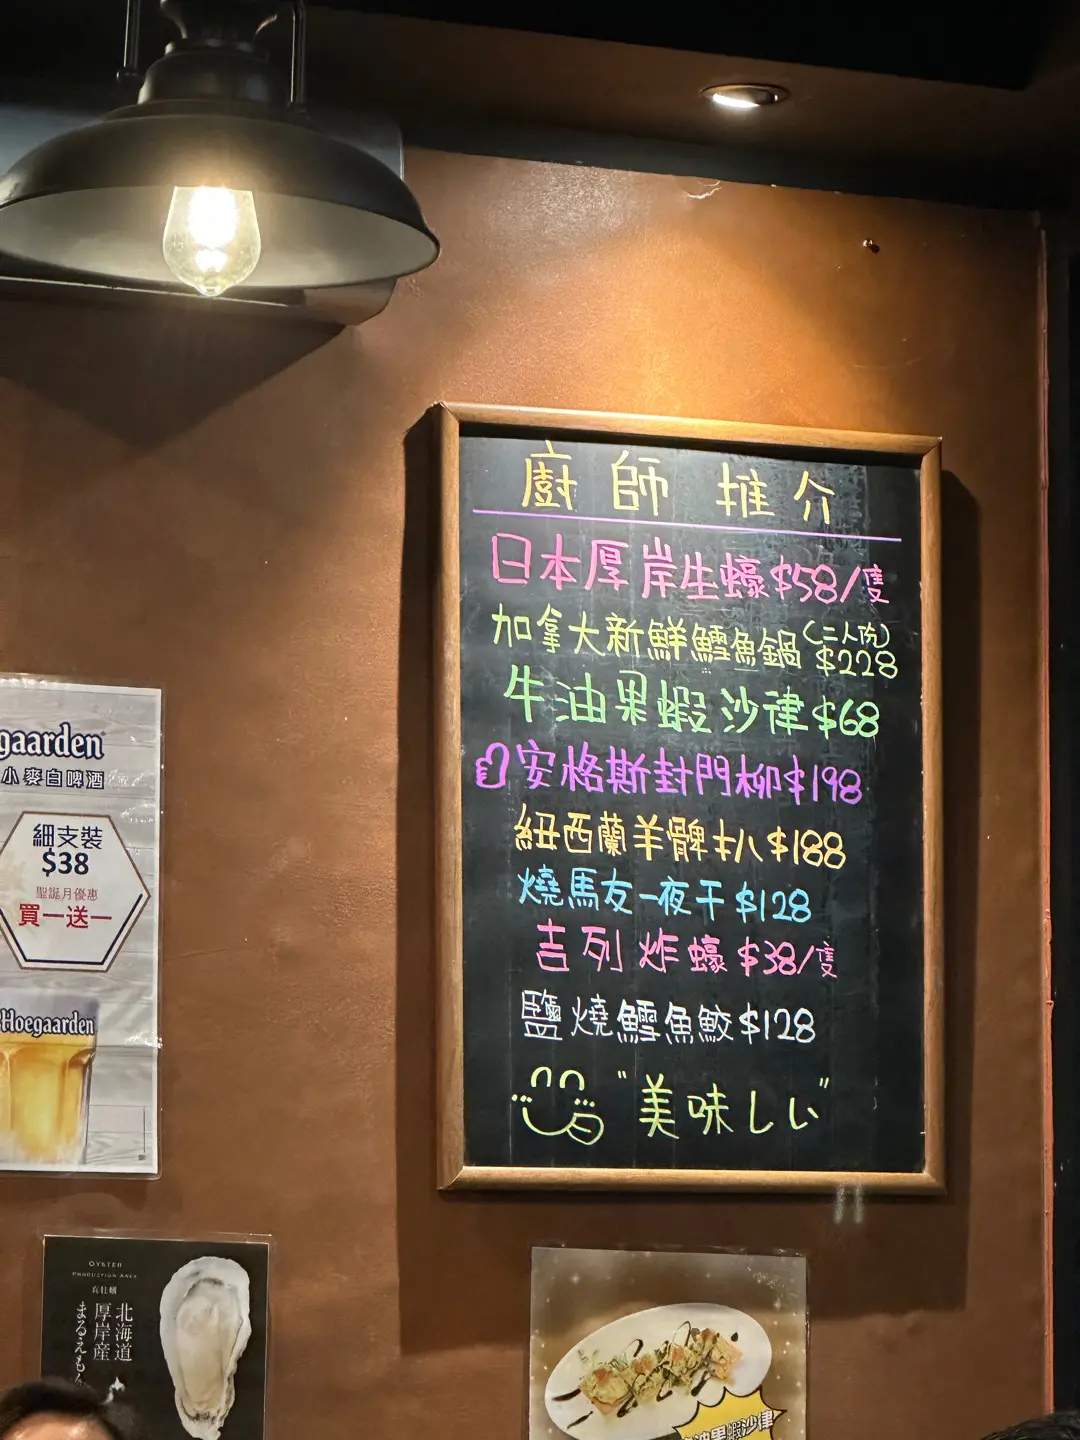 廚師推介
日本厚岸生蠔$58/隻
加拿大新鮮鱈魚鍋(二人份)$228
牛油果蝦沙律$68
安格斯封門柳$198
紐西蘭羊髀扒$188
燒馬友一夜干$128
吉列炸蠔$38/隻
鹽燒鱈魚鮫$128
"美味しい"
gaarden
小麥白啤酒
細支裝
$38
聖誕月優惠
買一送一
Hoegaarden
OYSTER
PRODUCTION AREA
真牡蠣
北海道
厚岸産
まるえもん
油果蝦沙律